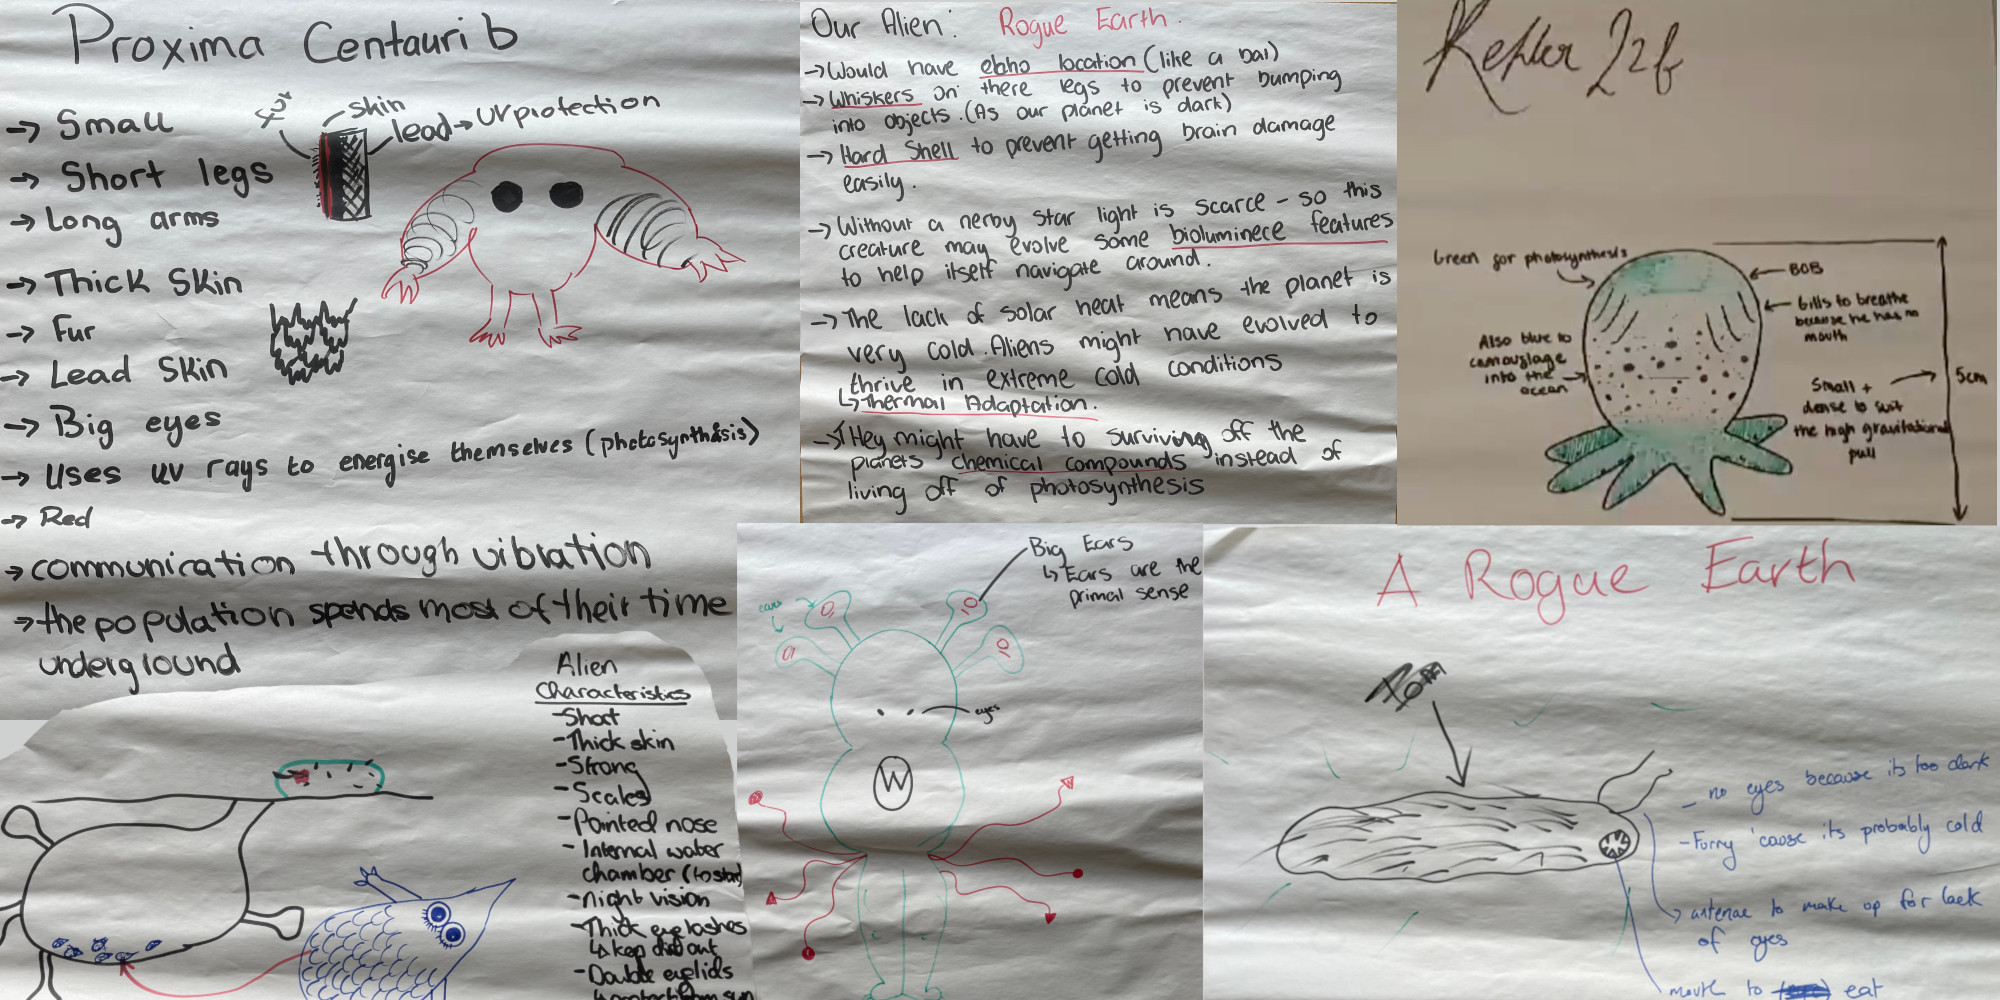 Proxima Centauri b
→ Small
→ Short legs
→ Long arms
→ Thick Skin
→ Fur
→ Lead Skin
→ Big eyes
→ Uses uv rays to energise themselves (photosynthisis)
→ Red
→ communication through vibration
→ the population spends most of their time
underground
fur
skin
lead → UV protection
Our Alien: Rogue Earth.
→ Would have ebho location (like a bat)
→ Whiskers on there legs to prevent bumping
into objects. (As our planet is dark)
→ Hard Shell to prevent getting brain damage
easily.
→ Without a nerby star light is scarce - so this
creature may evolve some bioluminece features
to help itself navigate around.
→ The lack of solar heat means the planet is
very cold. Aliens might have evolved to
thrive in extreme cold conditions
↳ Thermal Adaptation.
→ They might have to surviving off the
planets chemical compounds instead of
living off of photosynthesis
Kepler 22b
Green for photosynthesis
BOB
Gills to breathe
because he has no
mouth
Also blue to
camouflage
into the
ocean
Small +
dense to suit
the high gravitational
pull
5cm
Alien
Characteristics
- Short
- Thick skin
- Strong
- Scales
- Pointed nose
- Internal water
chamber (to store)
- night vision
- Thick eyelashes
↳ keep dirt out
- Double eyelids
↳ protect from sun
Big Ears
↳ Ears are the
primal sense
ears
eyes
W
A Rogue Earth
Tom
- no eyes because its too dark
- Furry 'cause its probably cold
→ antenae to make up for lack
of eyes
mouth to eat